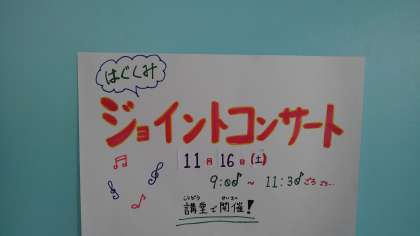 はぐくみ
ジョイントコンサート
11月16日(土)
9:00 ~ 11:30ごろ
こうどう かいさい
講堂で開催!